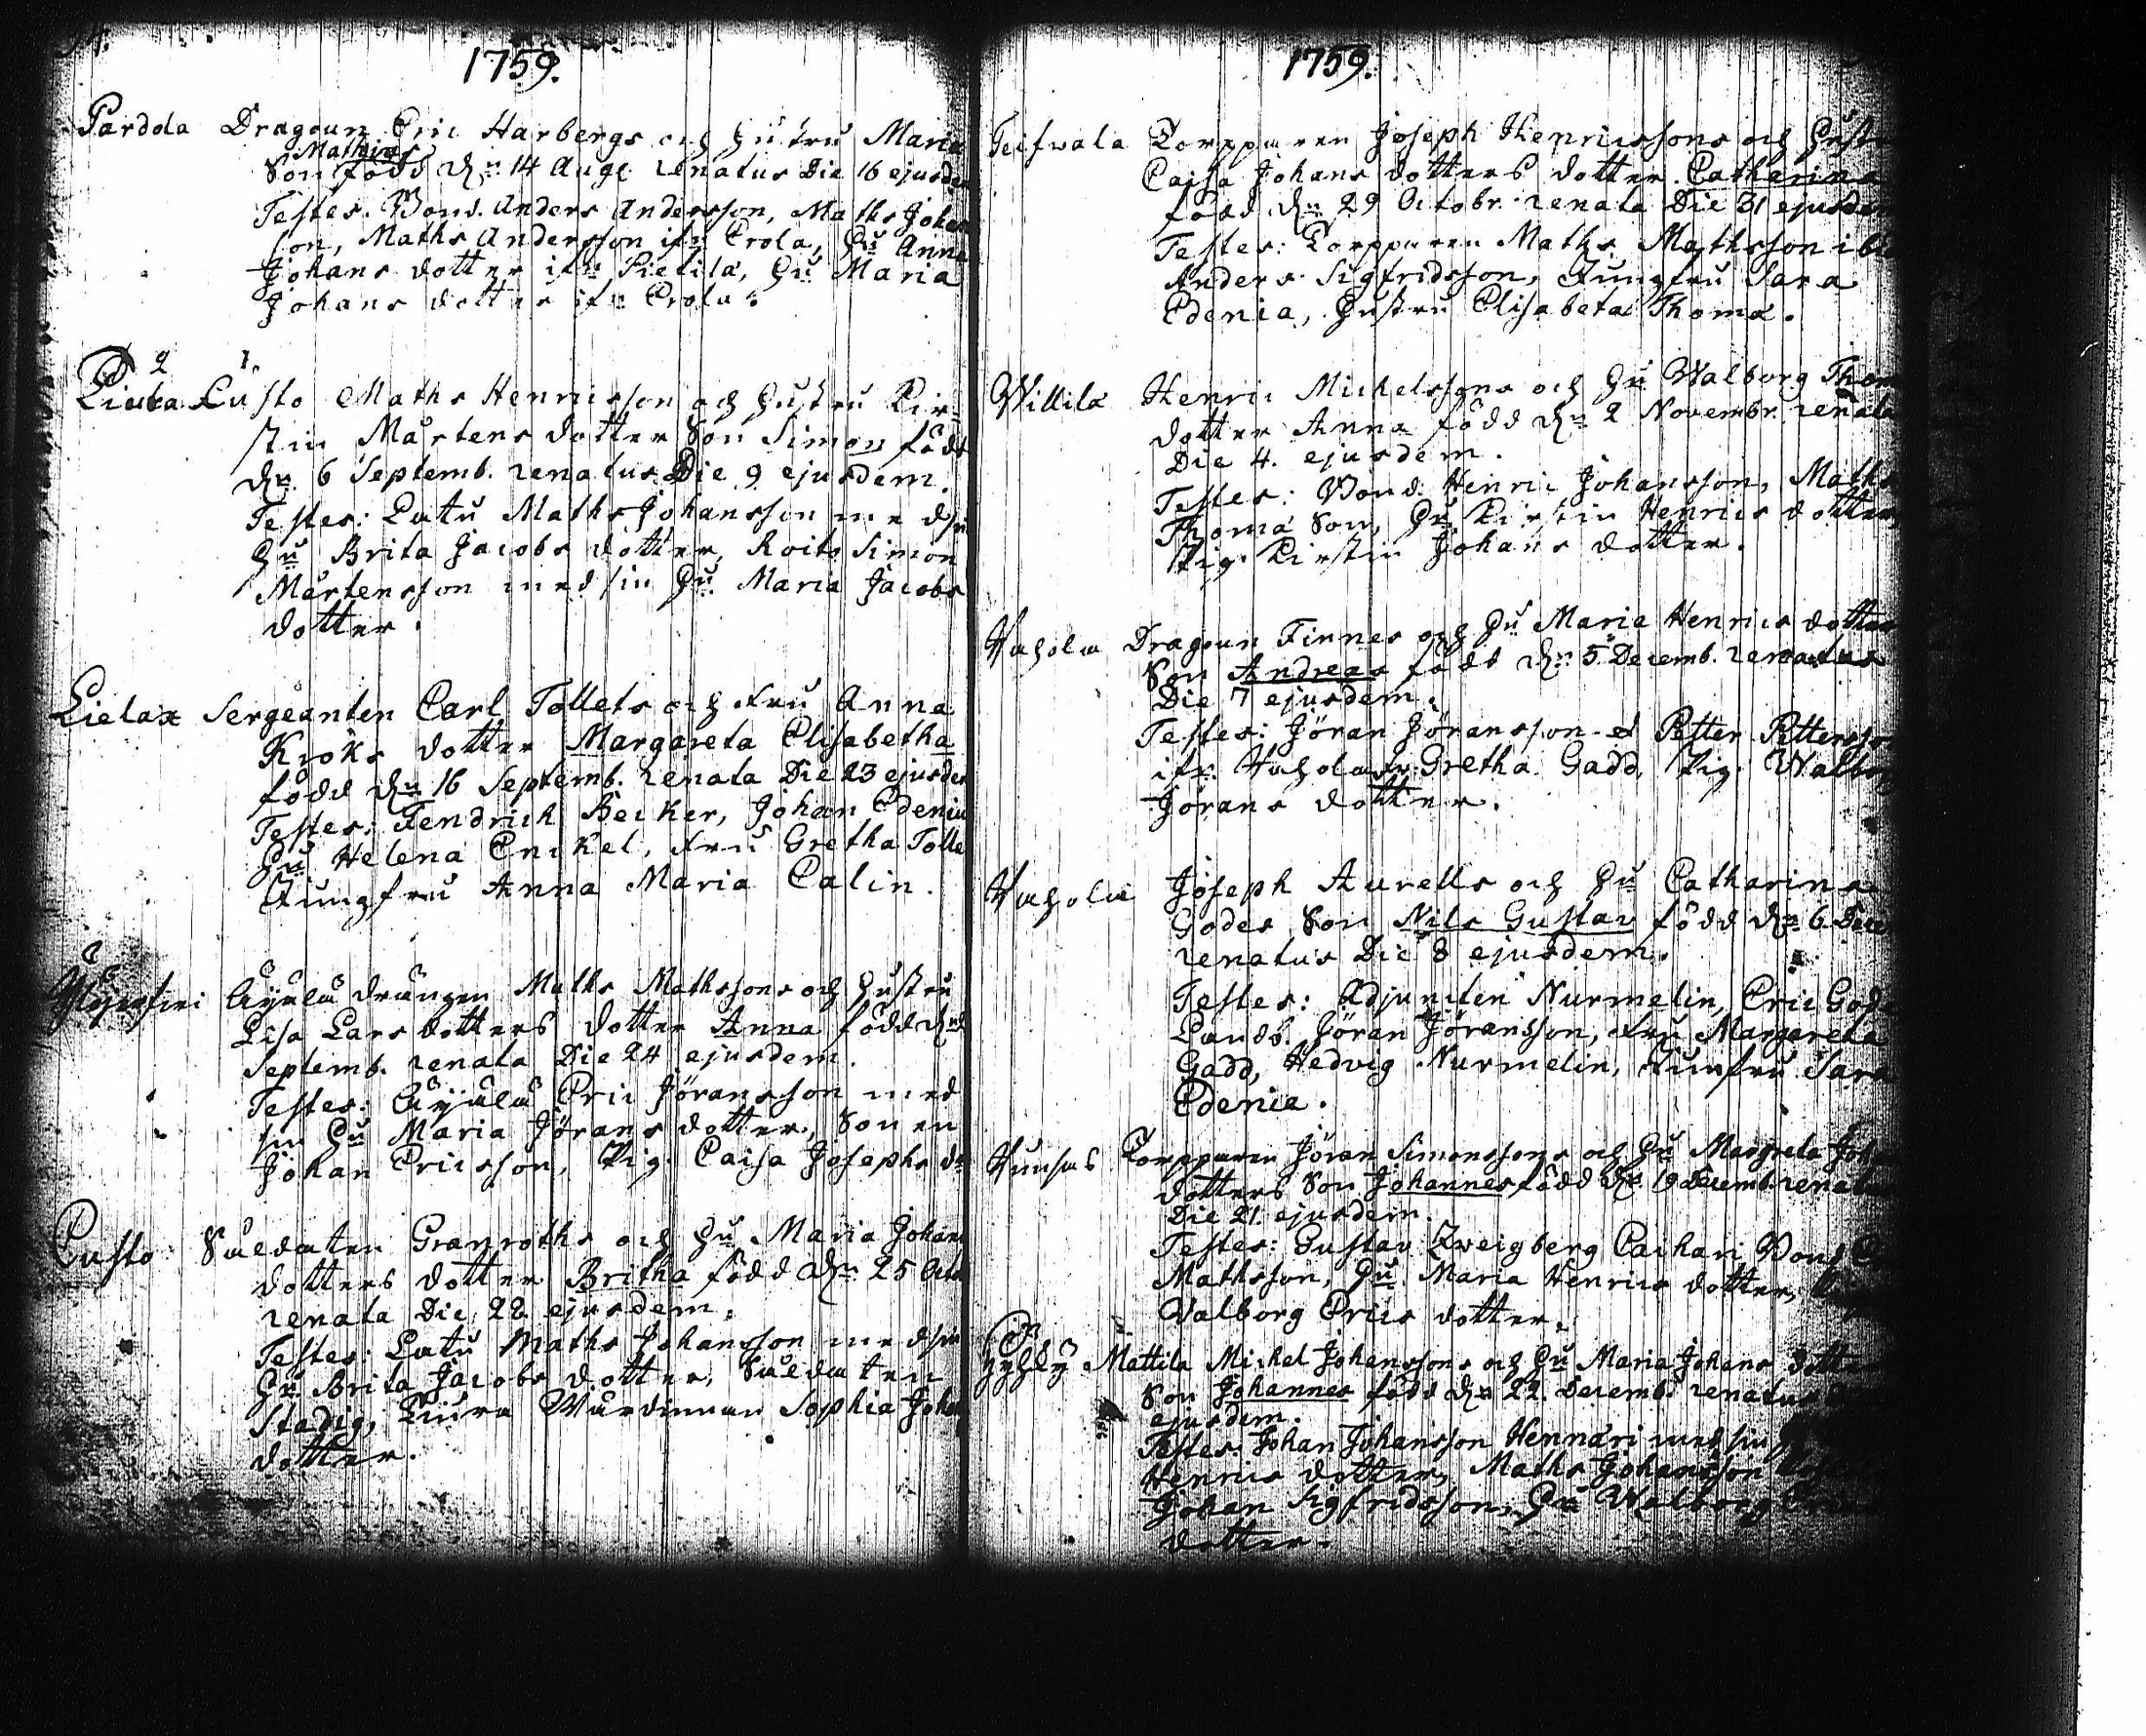 1759.
Pardola Dragoun Eric Harbergs och hustru Maria
Mathias
Son född dn 14 Aug. renatus Die 16 ejusdem
Testes. Bond. Anders Andersson, Maths Johans
son, Maths Andersson ifn Erola, Hu Anna
Johans dotter ifn Pietilä, Hu Maria
Johans dotter ifn Erola.
2 1.
Custo Maths Henricsson och hustru Kir-
stin Mårtens dotter Son Simon född
dn 6 Septemb. renatus Die 9 ejusdem.
Testes: Latu Maths Johansson med sin
Hu Brita Jacobs dotter, Roito Simon
Mårtensson med sin Hu. Maria Jacobs
dotter.
Lielax Sergeanten Carl Tollets och Fru Anna
Kroks dotter Margareta Elisabetha
född dn 16 Septemb. renata Die 23 ejusdem
Testes: Fendrich Becker, Johan Edenius
Hu Helena Enckel, Fru Gretha Tolle
Jungfru Anna Maria Calin.
drängen Maths Mathssons och hustru
Lisa Lars dotters dotter Anna född dn
Septemb. renata Die 24 ejusdem.
Testes: Eric Jöransson med
sin Hu Maria Jörans dotter, Sonen
Johan Ericsson, Pig. Caisa Josephs do
Custo Såldaten Granroths och Hu Maria Johans
dotters dotter Britha född dn 25 Octo
renata Die 28 ejusdem.
Testes: Latu Maths Johansson med sin
Hu Brita Jacobs dotter, Såldaten
Stadig, Wärdinnan Sophia Johans
dotter.
1759.
Torpparen Joseph Henricssons och Hustru
Caisa Johans dotters dotter Catharina
född dn 29 Octobr. renata Die 31 ejusdem
Testes: Torpparen Maths Mathsson ibi
Anders Sigfridsson, Jungfru Sara
Edenia, Hustru Elisabeta Thomæ.
Willilä Henric Michelssons och Hu Walborg Thom
dotter Anna född dn 2 Novembr. renata
Die 4. ejusdem.
Testes: Bond. Henric Johansson, Maths
Thomæ Son, Hu. Kirstin Henrics dotter,
Pig. Kirstin Johans dotter.
Vahola Dragoun Finnes och Hu Maria Henrics dotter
Son Andreas född dn 5 Decemb. renatus
Die 7 ejusdem.
Testes: Jöran Jöransson et Petter Pettersson
ifn Vahola Gretha Gadd, Pig. Walborg
Jörans dotter.
Vahola Joseph Aurells och Hu Catharina
Godes Son Nils Gustav född dn 6 Dec
renatus Die 8 ejusdem.
Testes: Adjuncten Nurmelin, Eric God
Jöran Jöransson, Fru Margareta
Gadd, Hedvig Nurmelin, Junfru Sara
Edenia.
Torpparen Jöran Simonssons och Hu Margreta Joh
dotters Son Johannes född dn 19 Decemb. renatus
Die 21 ejusdem.
Testes: Gustav Zweigberg Caihari Bond
Mathsson, Hu. Maria Henrics dotter,
Valborg Erics dotter.
Mattila Michel Johanssons och Hu Maria Johans dotter
Son Johannes född dn 22. Decemb. renatus
ejusdem.
Testes: Johan Johansson Hennäri med sin
Henrics dotter, Maths Johansson
Johan Sigfridsson, Hu Walborg
dotter.